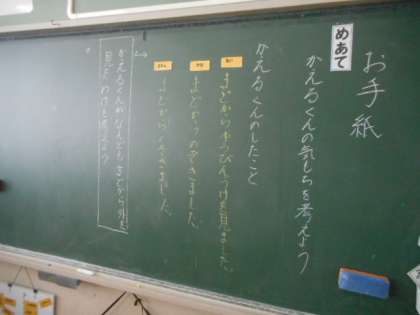 お手紙
めあて
かえるくんの気もちを考えよう
かえるくんのしたこと
まどからゆうびんうけを見ました。
まどからのぞきました。
まどから
かえるくんがなんども まどから外を
見たわけを考えよう